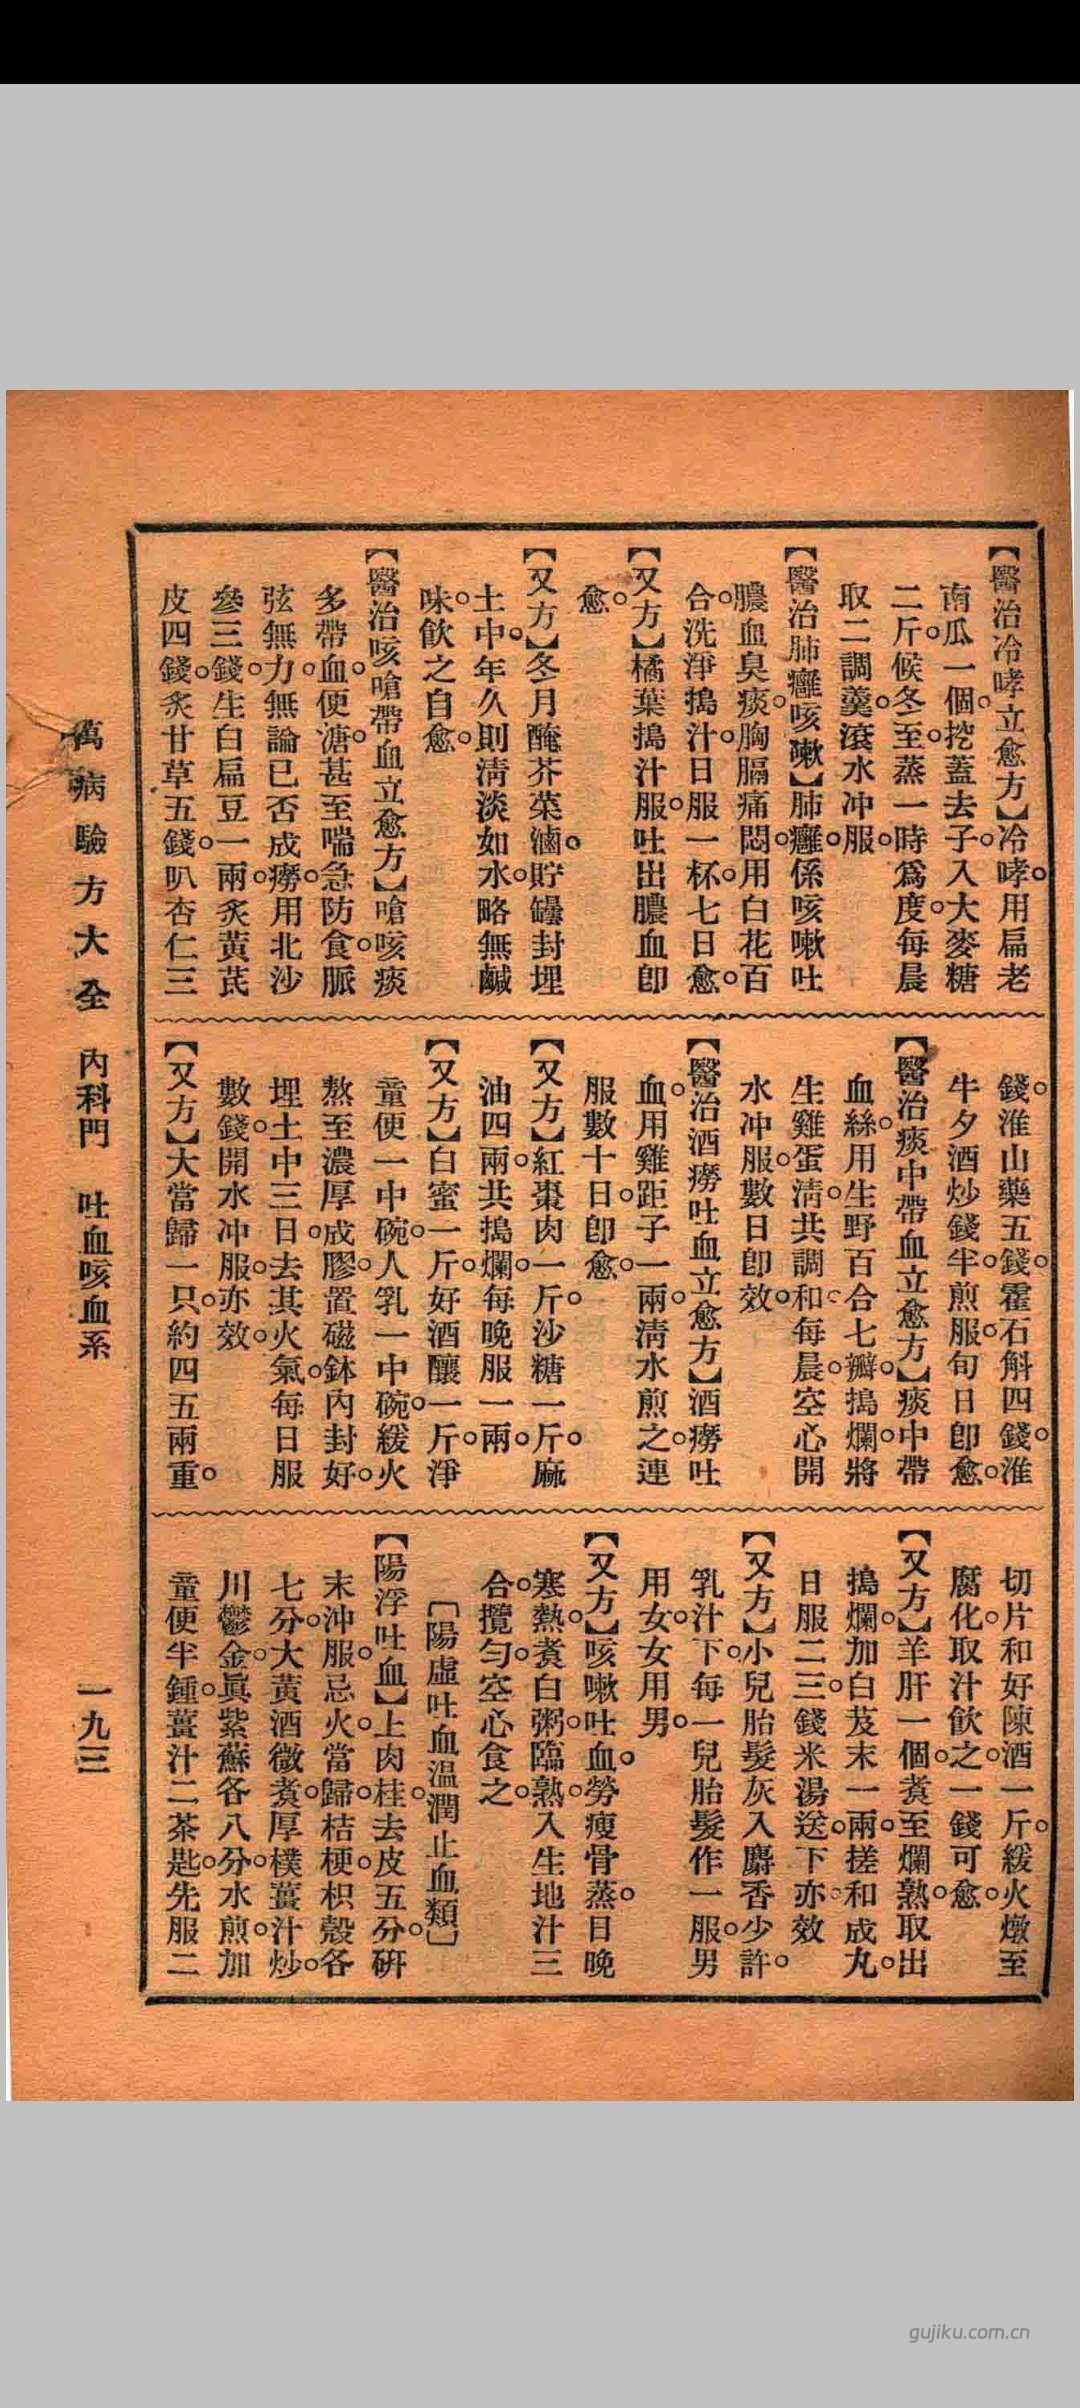 【醫治冷哮立愈方】冷哮。用扁老
南瓜一個。挖蓋去子。入大麥糖
二斤。候冬至。蒸一時爲度。每晨
取二調羹。滾水冲服。
【醫治肺癰咳嗽】肺癰。係咳嗽吐
膿血臭痰。胸膈痛悶。用白花百
合。洗淨搗汁。日服一杯。七日愈。
【又方】橘葉搗汁服。吐出膿血卽
愈。
【又方】冬月醃芥菜滷。貯罎封埋
土中。年久則清淡如水。略無鹹
味。飲之自愈。
【醫治咳嗆帶血立愈方】嗆咳痰
多帶血。便溏。甚至喘急防食。脈
弦無力。無論已否成癆。用北沙
參三錢。生白扁豆一兩。炙黃芪
皮四錢。炙甘草五錢。叭杏仁三
錢。淮山藥五錢。霍石斛四錢。淮
牛夕酒炒錢半。煎服。旬日卽愈。
【醫治痰中帶血立愈方】痰中帶
血絲。用生野百合七瓣。搗爛。將
生雞蛋清。共調和。每晨。空心開
水冲服。數日卽效。
【醫治酒癆吐血立愈方】酒癆吐
血。用雞距子一兩。清水煎之。連
服數十日。卽愈。
【又方】紅棗肉一斤。沙糖一斤。麻
油四兩。共搗爛。每晚服一兩。
【又方】白蜜一斤。好酒釀一斤。淨
童便一中碗。人乳一中碗。緩火
熬至濃厚成膠。置磁鉢內封好。
埋土中三日。去其火氣。每日服
數錢。開水冲服。亦效。
【又方】大當歸一只。約四五兩重。
切片和好陳酒一斤。緩火燉至
腐化。取汁飲之。一錢可愈。
【又方】羊肝一個。煑至爛熟。取出
搗爛。加白芨末一兩。搓和成丸。
日服二三錢。米湯送下。亦效
【又方】小兒胎髮灰。入麝香少許。
乳汁下。每一兒胎髮作一服。男
用女。女用男。
【又方】咳嗽吐血。勞瘦骨蒸。日晚
寒熱。煑白粥。臨熟。入生地汁三
合。攪勻。空心食之。
〔陽虛吐血温潤止血類〕
【陽浮吐血】上肉桂去皮五分。研
末沖服。忌火。當歸。桔梗。枳殼各
七分。大黃酒微煑。厚樸薑汁炒。
川鬱金。眞紫蘇各八分。水煎。加
童便半鍾。薑汁二茶匙。先服二
萬病驗方大全 內科門 吐血咳血系 一九三
gujiku.com.cn